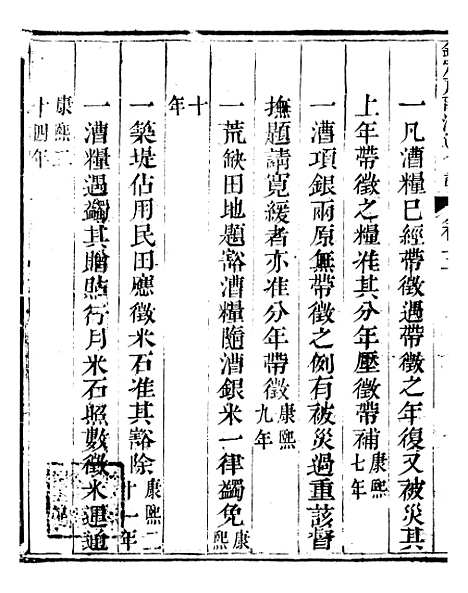 一凡漕糧已經帶徵遇帶徵之年復又被災其
上年帶徵之糧准其分年壓徵帶補康熙七年
一漕項銀兩原無帶徵之例有被災過重該督
撫題請寬緩者亦准分年帶徵康熙九年
一荒缺田地題豁漕糧隨漕銀米一律蠲免康熙
十年
一築堤佔用民田應徵米石准其豁除康熙二十一年
一漕糧遇蠲其贈貼行月米石照數徵米運通
康熙二十四年